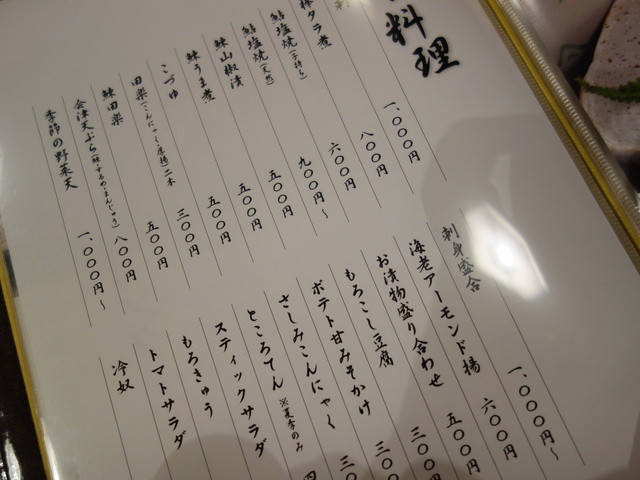 料理
一、〇〇〇円
棒タラ煮 八〇〇円
鮎塩焼(子持ち) 六〇〇円
鮎塩焼(天然) 九〇〇円〜
鰊山椒漬 五〇〇円
鰊うま煮 五〇〇円
こづゆ 五〇〇円
田楽(こんにゃく・厚揚)二本 三〇〇円
鰊田楽 五〇〇円
会津天ぷら(鰊・するめ・まんじゅう) 八〇〇円
季節の野菜天 一、〇〇〇円〜
刺身盛合 一、〇〇〇円〜
海老アーモンド揚 六〇〇円
お漬物盛り合わせ 五〇〇円
もろこし豆腐 三〇〇
ポテト甘みそかけ 三〇
さしみこんにゃく 三〇
ところてん ※夏季のみ 四
スティックサラダ
もろきゅう
トマトサラダ
冷奴